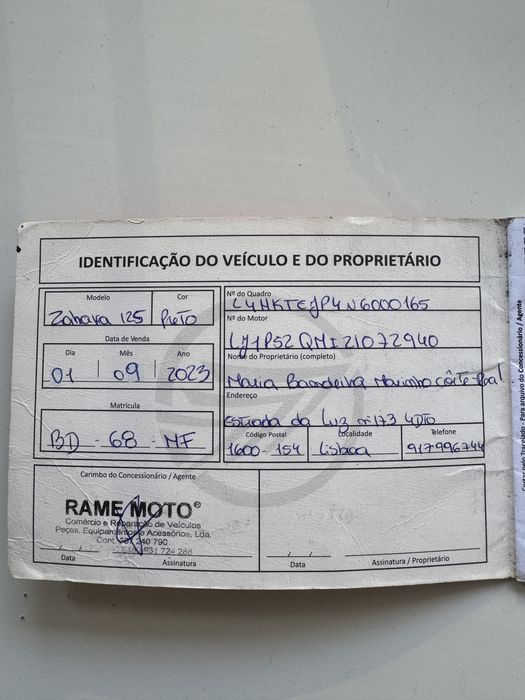 IDENTIFICAÇÃO DO VEÍCULO E DO PROPRIETÁRIO
Modelo
Cor
Zahara 125
Preto
Data de Venda
Dia
Mês
Ano
01
09
2023
Matrícula
BD - 68 - NF
Nº do Quadro
L4HKTEJP4N6000165
Nº do Motor
LJ1P52QMI21072940
Nome do Proprietário (completo)
Maria Bandeira Marinho côrte-Real
Endereço
Estrada da Luz nº173 4DTO
Código Postal
Localidade
Telefone
1600-154
Lisboa
917996744
Carimbo do Concessionário / Agente
RAME MOTO®
Comércio e Reparação de Veículos
Peças, Equipamentos e Acessórios, Lda.
Cont. 240 790
931 724 288
Data
Assinatura
Data
Assinatura / Proprietário
- Para arquivo do Concessionário / Agente